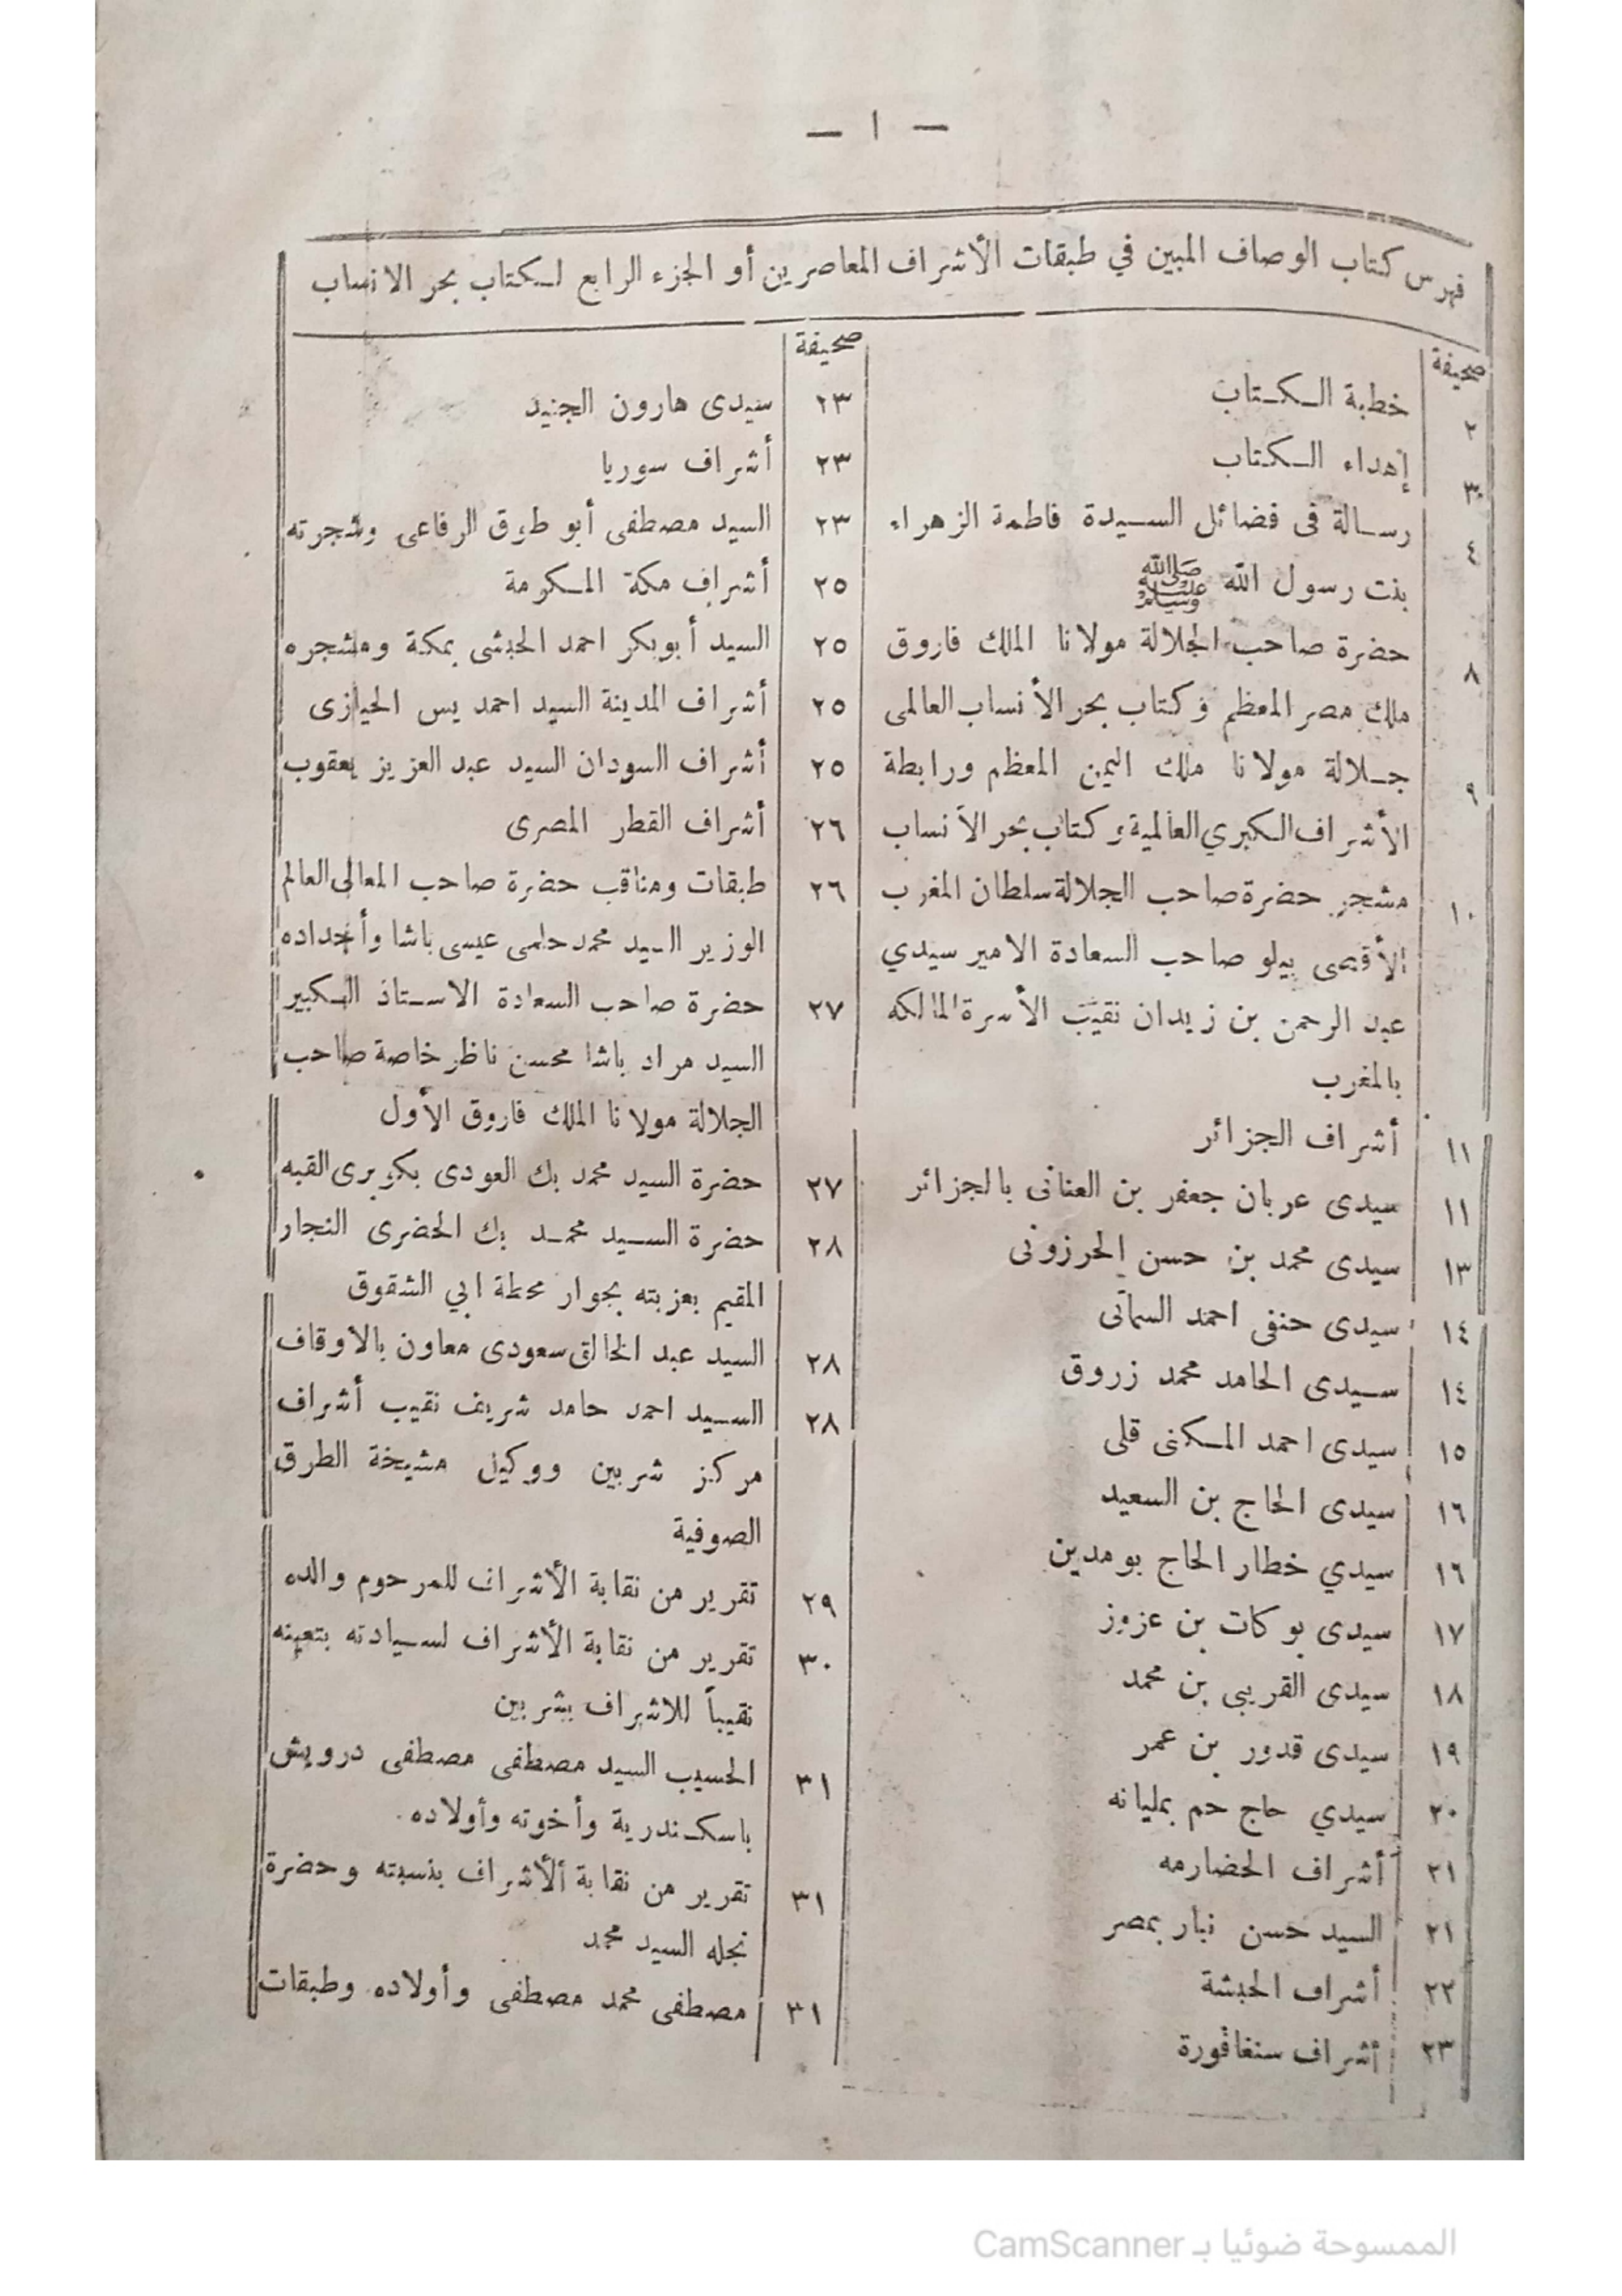 — ١ —
فهرس كتاب الوصاف المبين في طبقات الأشراف المعاصرين أو الجزء الرابع لكتاب بحر الانساب
صحيفة
٢ خطبة الكتاب
٣ إهداء الكتاب
٤ رسالة فى فضائل السيدة فاطمة الزهراء
بنت رسول الله ﷺ
٨ حضرة صاحب الجلالة مولانا الملك فاروق
ملك مصر المعظم و كتاب بحر الأنساب العالمى
٩ جلالة مولانا ملك اليمن المعظم ورابطة
الأشراف الكبري العالمية و كتاب بحر الأنساب
١٠ مشجر حضرة صاحب الجلالة سلطان المغرب
الأقصى بيلو صاحب السعادة الامير سيدي
عبد الرحمن بن زيدان نقيب الأسرة المالكه
بالمغرب
١١ أشراف الجزائر
١١ سيدى عربان جعفر بن العنانى بالجزائر
١٣ سيدى محمد بن حسن الحرزونى
١٤ سيدى حنفى احمد السماتى
١٤ سيدى الحامد محمد زروق
١٥ سيدى احمد المكنى قلى
١٦ سيدى الحاج بن السعيد
١٦ سيدي خطار الحاج بومدين
١٧ سيدى بوكات بن عزوز
١٨ سيدى القريبى بن محمد
١٩ سيدى قدور بن عمر
٢٠ سيدي حاج حم بمليانه
٢١ أشراف الحضارمه
٢١ السيد حسن نبار بمصر
٢٢ أشراف الحبشة
٢٣ أشراف سنغافورة
صحيفة
٢٣ سيدى هارون الجنيد
٢٣ أشراف سوريا
٢٣ السيد مصطفى أبو طوق الرفاعى وشجرته
٢٥ أشراف مكة المكرمة
٢٥ السيد أبوبكر احمد الحبشى بمكة ومشجره
٢٥ أشراف المدينة السيد احمد يس الخيازى
٢٥ أشراف السودان السيد عبد العزيز يعقوب
٢٦ أشراف القطر المصرى
٢٦ طبقات ومناقب حضرة صاحب المعالى العالم
الوزير السيد محمد حلمى عيسى باشا وأجداده
٢٧ حضرة صاحب السعادة الاستاذ الكبير
السيد مراد باشا محسن ناظر خاصة صاحب
الجلالة مولانا الملك فاروق الأول
٢٧ حضرة السيد محمد بك العودى بكوبرى القبه
٢٨ حضرة السيد محمد بك الحضرى النجار
المقيم بعزبته بجوار محطة ابي الشقوق
٢٨ السيد عبد الخالق سعودى معاون بالاوقاف
٢٨ السيد احمد حامد شريف نقيب أشراف
مركز شربين ووكيل مشيخة الطرق
الصوفية
٢٩ تقرير من نقابة الأشراف للمرحوم والده
٣٠ تقرير من نقابة الأشراف لسيادته بتعينه
نقيباً للاشراف بشربين
٣١ الحسيب السيد مصطفى مصطفى درويش
باسكندرية وأخوته وأولاده
٣١ تقرير من نقابة ألأشراف بنسبته وحضرة
نجله السيد محمد
٣١ مصطفى محمد مصطفى وأولاده وطبقات
الممسوحة ضوئيا بـ CamScanner